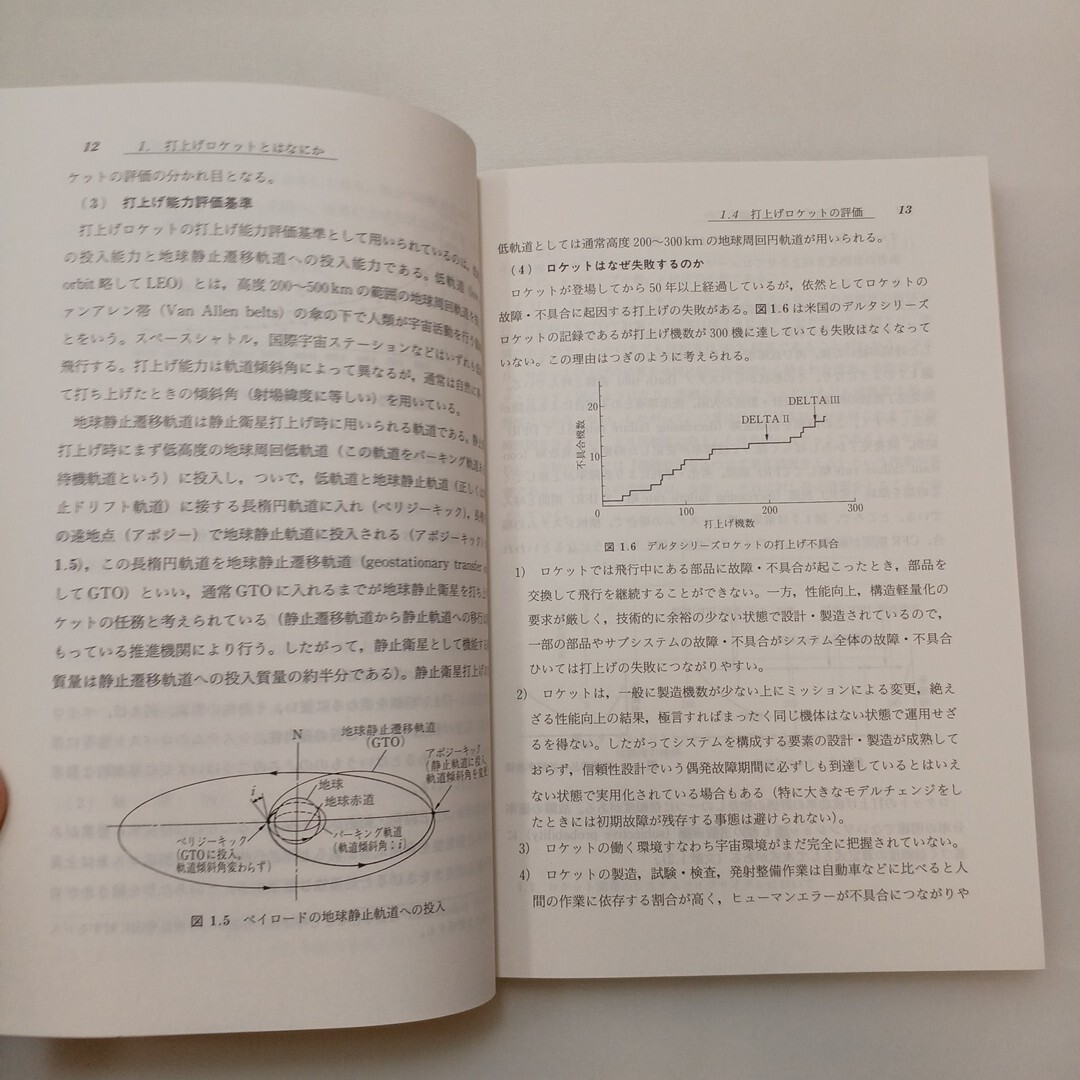 12 1. 打上げロケットとはなにか
ケットの評価の分かれ目となる。
(3) 打上げ能力評価基準
打上げロケットの打上げ能力評価基準として用いられているのは,
の投入能力と地球静止遷移軌道への投入能力である。低軌道
orbit 略して LEO) とは, 高度 200〜500 km の範囲の地球周回軌道を
ァンアレン帯 (Van Allen belts) の傘の下で人類が宇宙活動を行う
とをいう。スペースシャトル, 国際宇宙ステーションなどはいずれも
飛行する。打上げ能力は軌道傾斜角によって異なるが, 通常は自然に
て打ち上げたときの傾斜角 (射場緯度に等しい) を用いている。
地球静止遷移軌道は静止衛星打上げ時に用いられる軌道である。静止
打上げ時にまず低高度の地球周回低軌道 (この軌道をパーキング軌道
待機軌道という) に投入し, ついで, 低軌道と地球静止軌道 (正しくは
止ドリフト軌道) に接する長楕円軌道に入れ (ペリジーキック),
の遠地点 (アポジー) で地球静止軌道に投入される (アポジーキック)
1.5), この長楕円軌道を地球静止遷移軌道 (geostationary transfer
して GTO) といい, 通常 GTO に入れるまでが地球静止衛星を打ち上
ケットの任務と考えられている (静止遷移軌道から静止軌道への移行
もっている推進機関により行う。したがって, 静止衛星として機能する
質量は静止遷移軌道への投入質量の約半分である)。静止衛星打上げ
N
地球静止遷移軌道
(GTO)
アポジーキック
(静止軌道に投入,
軌道傾斜角を変更
i
地球
地球赤道
パーキング軌道
(軌道傾斜角:i)
ペリジーキック
(GTOに投入,
軌道傾斜角変わらず)
図 1.5 ペイロードの地球静止軌道への投入
1.4 打上げロケットの評価 13
低軌道としては通常高度 200〜300 km の地球周回円軌道が用いられる。
(4) ロケットはなぜ失敗するのか
ロケットが登場してから 50 年以上経過しているが, 依然としてロケットの
故障・不具合に起因する打上げの失敗がある。図 1.6 は米国のデルタシリーズ
ロケットの記録であるが打上げ機数が 300 機に達していても失敗はなくなって
いない。この理由はつぎのように考えられる。
20
10
0
100
200
300
DELTA II
DELTA III
不具合機数
打上げ機数
図 1.6 デルタシリーズロケットの打上げ不具合
1) ロケットでは飛行中にある部品に故障・不具合が起こったとき, 部品を
交換して飛行を継続することができない。一方, 性能向上, 構造軽量化の
要求が厳しく, 技術的に余裕の少ない状態で設計・製造されているので,
一部の部品やサブシステムの故障・不具合がシステム全体の故障・不具合
ひいては打上げの失敗につながりやすい。
2) ロケットは, 一般に製造機数が少ない上にミッションによる変更, 絶え
ざる性能向上の結果, 極言すればまったく同じ機体はない状態で運用せざ
るを得ない。したがってシステムを構成する要素の設計・製造が成熟して
おらず, 信頼性設計でいう偶発故障期間に必ずしも到達しているとはいえ
ない状態で実用化されている場合もある (特に大きなモデルチェンジをし
たときには初期故障が残存する事態は避けられない)。
3) ロケットの働く環境すなわち宇宙環境がまだ完全に把握されていない。
4) ロケットの製造, 試験・検査, 発射整備作業は自動車などに比べると人
間の作業に依存する割合が高く, ヒューマンエラーが不具合につながりや